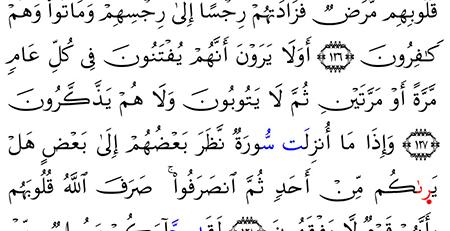 قُلُوبِهِم مَّرَضٌ فَزَادَتْهُمْ رِجْسًا إِلَىٰ رِجْسِهِمْ وَمَاتُوا۟ وَهُمْ
كَـٰفِرُونَ ١٢٦ أَوَلَا يَرَوْنَ أَنَّهُمْ يُفْتَنُونَ فِى كُلِّ عَامٍ
مَّرَّةً أَوْ مَرَّتَيْنِ ثُمَّ لَا يَتُوبُونَ وَلَا هُمْ يَذَّكَّرُونَ
١٢٧ وَإِذَا مَا أُنزِلَت سُّورَةٌ نَّظَرَ بَعْضُهُمْ إِلَىٰ بَعْضٍ هَلْ
يَرىٰكُم مِّنْ أَحَدٍ ثُمَّ ٱنصَرَفُوا۟ ۚ صَرَفَ ٱللَّهُ قُلُوبَهُم
بِأَنَّهُمْ قَوْمٌ لَّا يَفْقَهُونَ